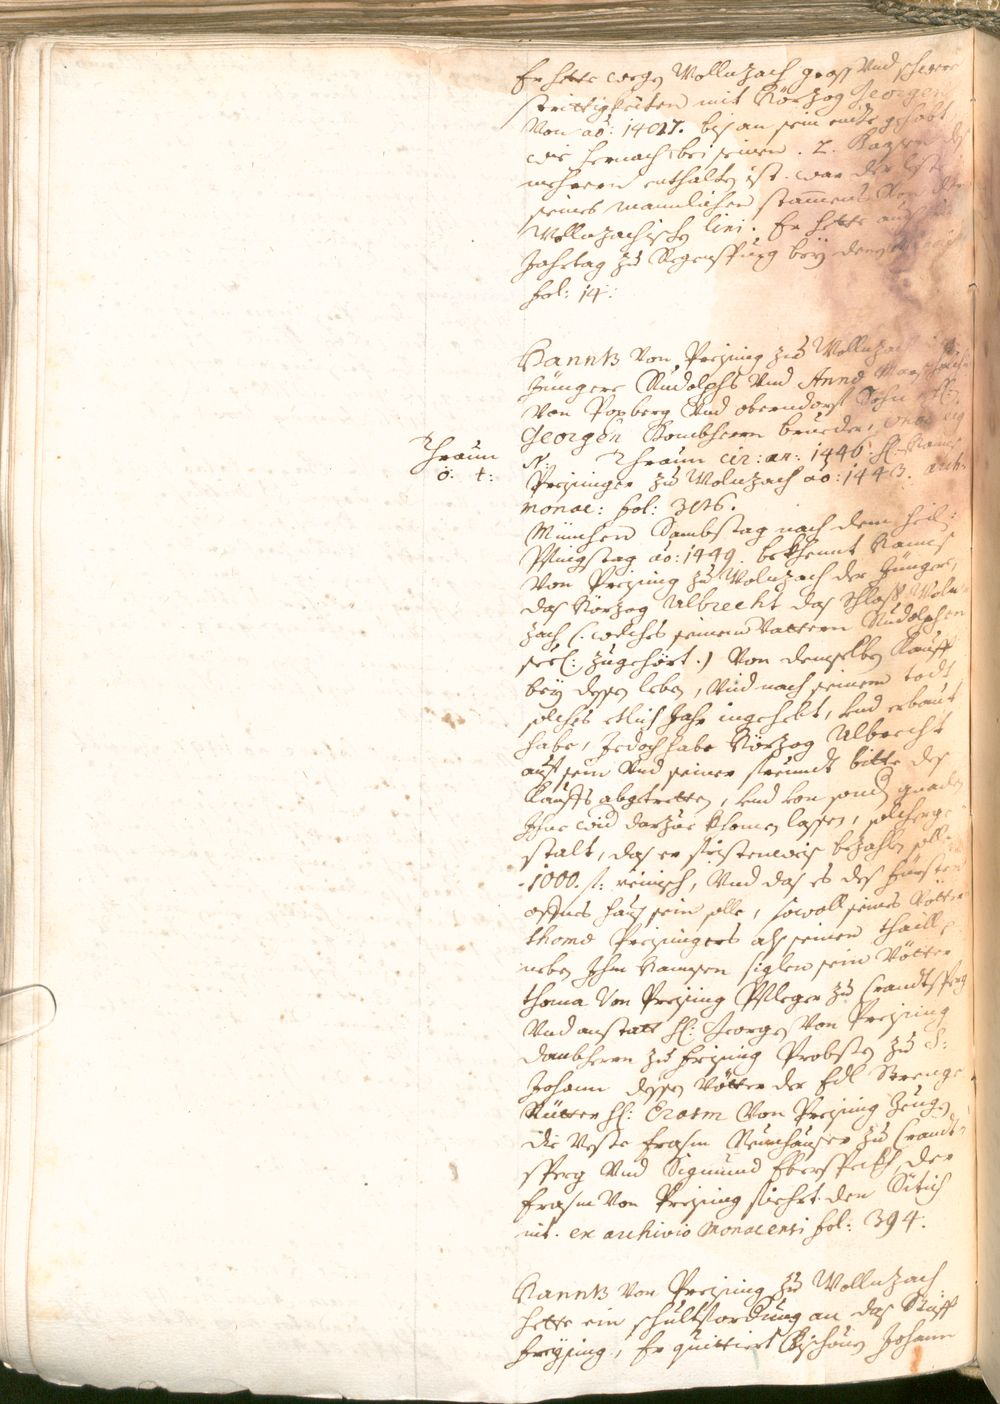 Er hette wegen Wollnzach gross und schwere
strittigkeiten mit Hörzog Georgen
Von ao: 14027. bis an sein ende gehabt
wie hernach bei seinen . 2.
mehrern enthalten ist. war der lest
seines mannlichen stammens
Wollnzachischen lini. Er hette auch
Jahrtag zu Regenspurg bey
fol: 14:
Hannß Von Preysing zu Wollnzach
Jüngere Rudolphs Und Anna Marschalckin
Von Popberg Und oberndorf Sohn
Georgen Thombherrn brueder,
N. Thraun cir: an: 1446.
Thraun
ö: t:
Preysinger zu Wolnzach ao: 1443. arch:
monac: fol: 306.
München Sambstag nach dem heil:
Pfingstag ao: 1449. bekhennt Hanns
Von Preysing zu Wolnzach der Jünger,
das Hörzog Albrecht das schloss Woln-
zach (: welches seinem Vattern Rudolphen
seel: zugehört.) Von demselben kaufft
bey dessen leben, Und nach seinem todt
solches etlich Jahr ingehebt, Und erbaut
habe, Jedoch habe Hörzog Albrecht
auf sein Und seiner freundt bitte des
kauffs abgetretten, Und Von sond gnaden
Ihne wid darzue khomen lassen, solcherge-
stalt, das er fristenweis bezahlen solle
1000. fl: reinisch, Und das es des Fürsten
offnes haus sein solle, sowoll seines Vettern
thoma Preysingers als seinen thaill,
neben Ihm Hannsen siglen sein Vötter
thoma Von Preysing Pfleger zu Crandtsperg
Und anstatt H: Georgen Von Preysing
dombherrn zu freysing Probsten zu S:
Johann dessen Vötter der Edl Strenge
Ritter H: Erasm Von Preysing Zeugen
die Veste Erasm Neunhauser zu Crandt-
sperg Und Sigmund Eberspeckh, der
Erasm Von Preysing fiehrt den Sitich
nit. ex archivio Monacensi fol: 394.
Hannß Von Preysing zu Wollnzach
hette ein schultfordung an das Stifft
freysing, Er quittiert Bischoven Johann